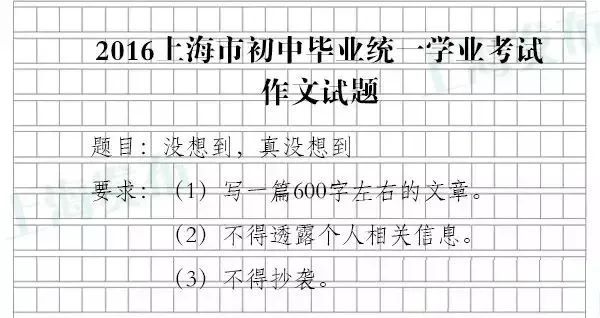 2016上海市初中毕业统一学业考试
作文试题
题目：没想到，真没想到
要求：（1）写一篇600字左右的文章。
（2）不得透露个人相关信息。
（3）不得抄袭。
上海发布
上海发布